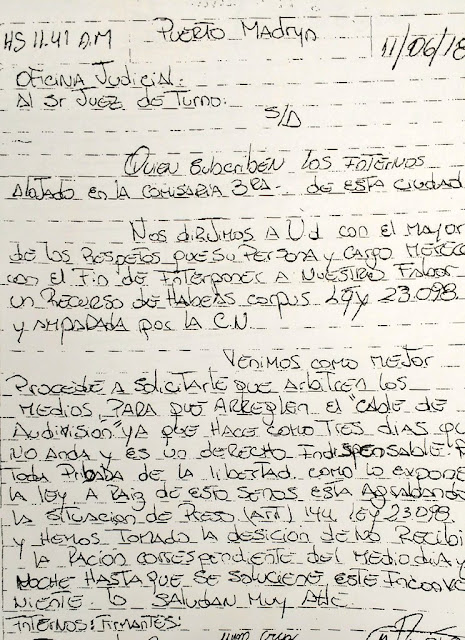 HS 11.41 A.M Puerto Madryn 11/06/18
Oficina Judicial.
Al Sr Juez de Turno.
S/D
Quien subscriben los internos
Alojado en la comisaria 3RA- de esta ciudad
Nos dirijimos a Ud con el mayor
de los Respetos que su persona y cargo merece
con el Fin de Interponer a Nuestro Fabor
un Recurso de Habeas corpus Ley 23.098
y ampadada por la C.N
Venimos como mejor
Procede a solicitarle que arbitren los
medios para que arreglen el "cable de
Audivisión" ya que hace como tres dias qu
no anda y es un derecho Indispensable. P
toda Pribada de la libertad como lo expone
la ley a Raiz de esto senos esta Agrabando
la situacion de Preso (ART) 144 LEY 23.098.
y Hemos Tomado la desicion de No Recibi
la Racion correspondiente del Mediodia y
Noche Hasta que se solucione este Inconve
niente. lo Saludan Muy Atte.
Internos: Firmantes: